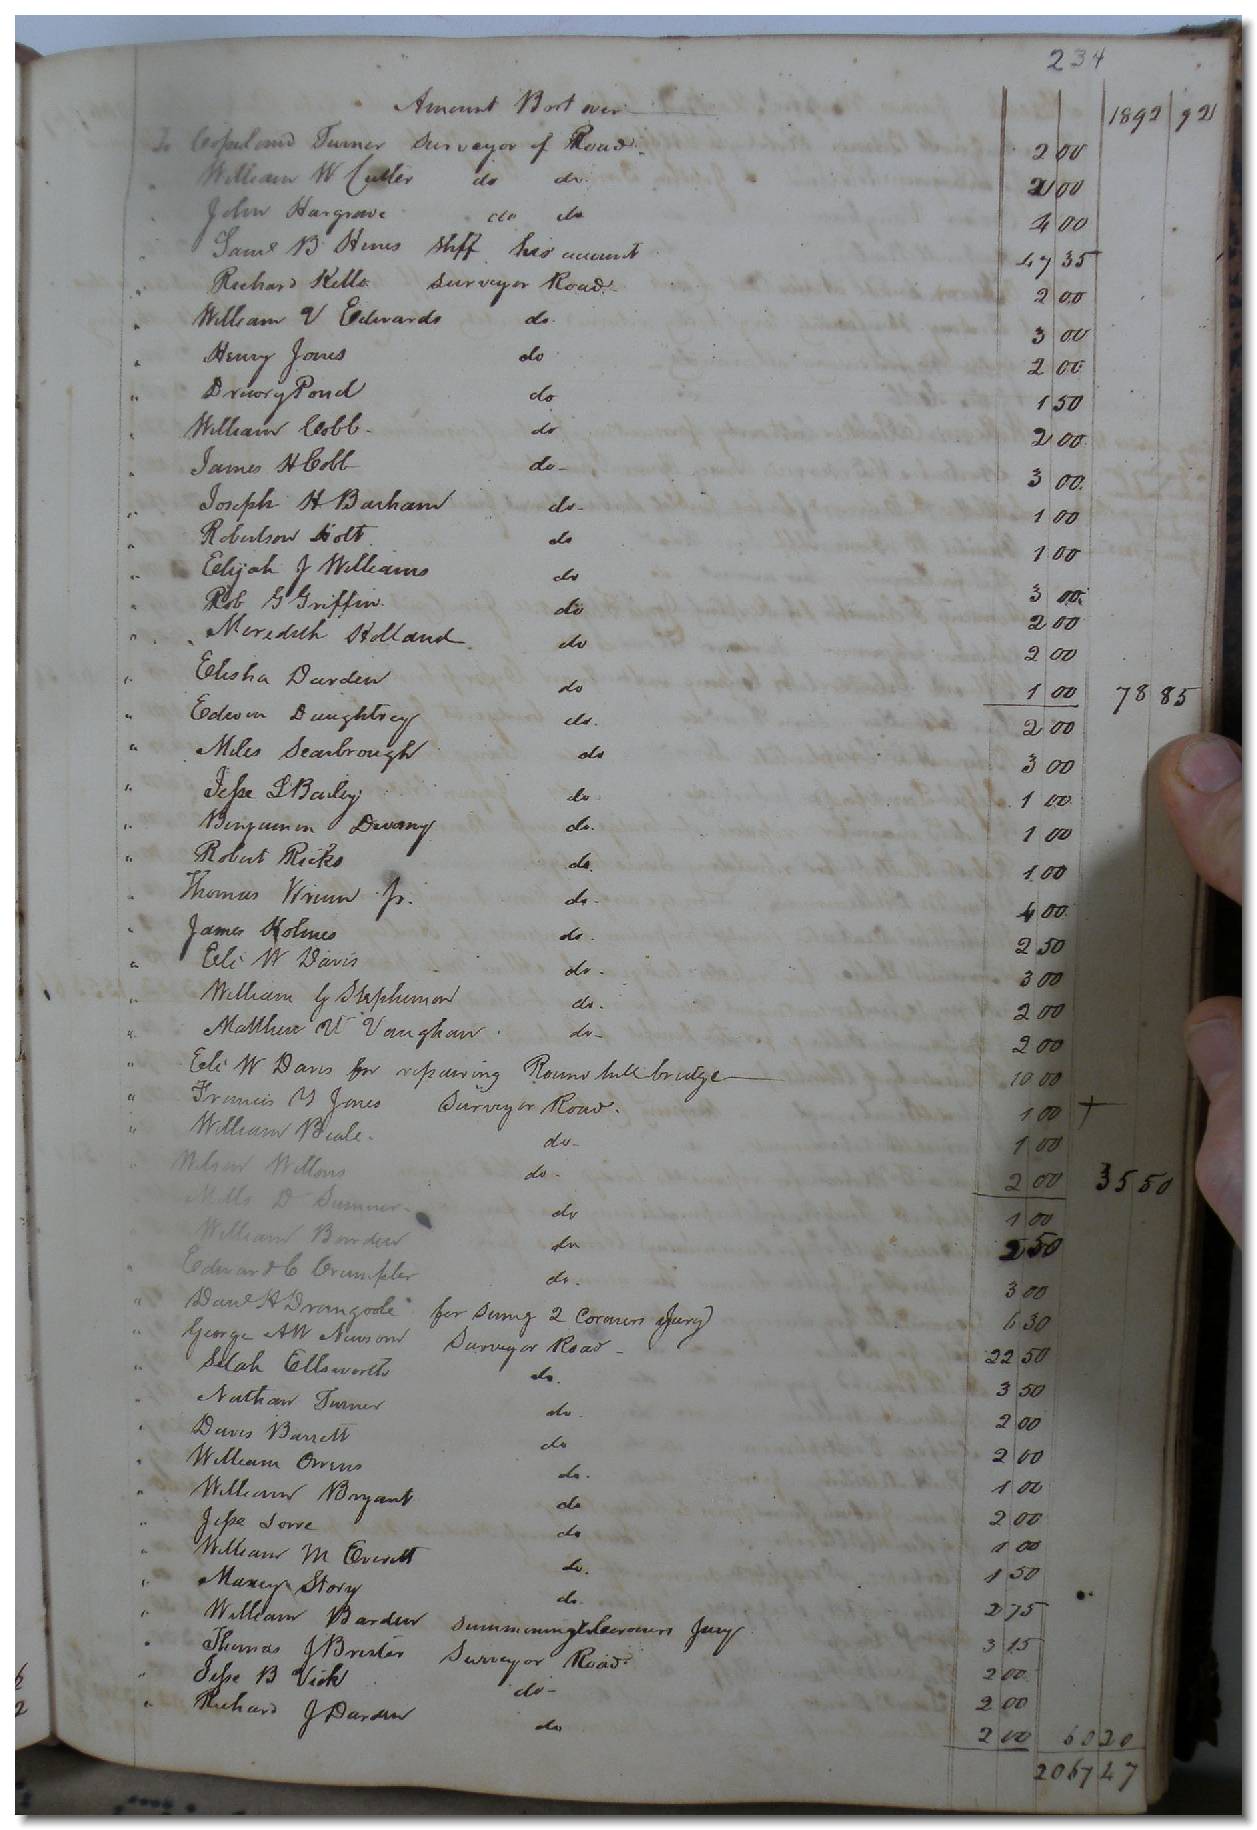 234
Amount Brt over 1892 92
To Copeland Turner Surveyor of Road 2 00
" William W Cutler do do 2 00
" John Hargrave do do 4 00
" Saml B Hines Shff his account 47 35
" Richard Kello Surveyor Road 2 00
" William V Edwards do 3 00
" Henry Jones do 2 00
" Drewry Pond do 1 50
" William Cobb do 2 00
" James H Cobb do 3 00
" Joseph H Barham do 1 00
" Robertson Holt do 1 00
" Elijah J Williams do 3 00
" Rob G Griffin do 2 00
" Meredith Holland do 2 00
" Elisha Darden do 1 00 78 85
" Edwin Daughtrey do 2 00
" Miles Scarbrough do 3 00
" Jesse L Bailey do 1 00
" Benjamin Dwany do 1 00
" Robert Ricks do 1 00
" Thomas Vrium Jr. do 4 00
" James Holmes do 2 50
" Eli W Davis do 3 00
" William G Stephenson do 2 00
" Matthew V Vaughan do 2 00
" Eli W Davis for repairing Round hill bridge 10 00
" Francis Y Jones Surveyor Road 1 00 +
" William Beale do 1 00
" Wilson Willons do 2 00 35 50
" Mills D Sumner do 1 00
" William Bowden do 2 50
" Edward C Crumpler do 3 00
" Danl H Dromgoole for Sumg 2 Coroners Jury 6 30
" George AW Newsom Surveyor Road 22 50
" Selah Ellsworth do 3 50
" Nathan Turner do 2 00
" Davis Barrett do 2 00
" William Owens do 1 00
" William Bryant do 2 00
" Jesse Lowe do 1 00
" William M Everett do 1 50
" Maney Story do 2 75
" William Barden summoning Coroners Jury 3 15
" Thomas J Brister Surveyor Road 2 00
" Jesse B Vick do 2 00
" Richard J Darden do 2 00 60 20
2067 47